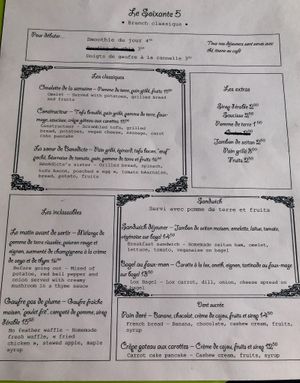 Le Soixante 5
• Brunch classique •
Pour débuter...
Smoothie du jour 4
3
Doigts de gaufre à la cannelle 3
Tous nos déjeuners sont servis avec
thé, tisane ou café
Les classiques
Omelette de la semaine – Pomme de terre, pain grillé, fruits
Omelet - Served with potatoes, grilled bread
and fruits
Constructeur – Tofu brouillé, pain grillé, pomme de terre, fromage,
saucisse, crêpe gâteau aux carottes
Constructor - Scrambled tofu, grilled
bread, potatoes, vegan cheese, sausage, carot
cake pancake
La soeur de Benedicte – Pain grillé, épinard, tofu
poché, béarnaise de tomate, pain, pomme de terre et fruits 16
Benedicte's sister - Grilled bread, spinach,
tofu bacon, poached egg, tomato béarnaise,
bread, potato, fruits
Les extras
Sirop d'érable 2
Saucisse 2
Pomme de terre 1
Jambon de seitan 2
Pain grillé
Fruits 2
Les inclassables
Le matin avant de sortir – Mélange de
pomme de terre rissolées, poivron rouge et
oignon, surmonté de champignons à la crème
de soya et de thym
Before going out - Mixed of
potatoe, red bell pepper and
onion served with creamy
mushroom & a thyme sauce
Gaufre pas de plume – Gaufre fraîche
maison, "poulet frit", compote de pomme, sirop
d'érable 15
No feather waffle - Homemade
fresh waffle, fried
chicken, stewed apple, maple
syrup
Sandwich
Servi avec pomme du terre et fruits
Sandwich déjeuner – Jambon de seitan maison, omelette, laitue, tomate,
végénaise sur bagel 14
Breakfast sandwich - Homemade seitan ham, omelet,
lettuce, tomato, veganaise on bagel
Bagel au faux-mon – Carotte à la lox, aneth, oignon, tartinade au fromage
sur bagel 13
Lox Bagel - Lox carrot, dill, onion, cheese spread on
bagel
Dent sucrée
Pain doré – Banane, chocolat, crème de cajou, fruits et sirop 14
French bread - Banana, chocolate, cashew cream, fruits,
syrup
Crêpe gateau aux carottes – Crème de cajou, fruits et sirop 12
Carrot cake pancake - Cashew cream, fruits, syrup